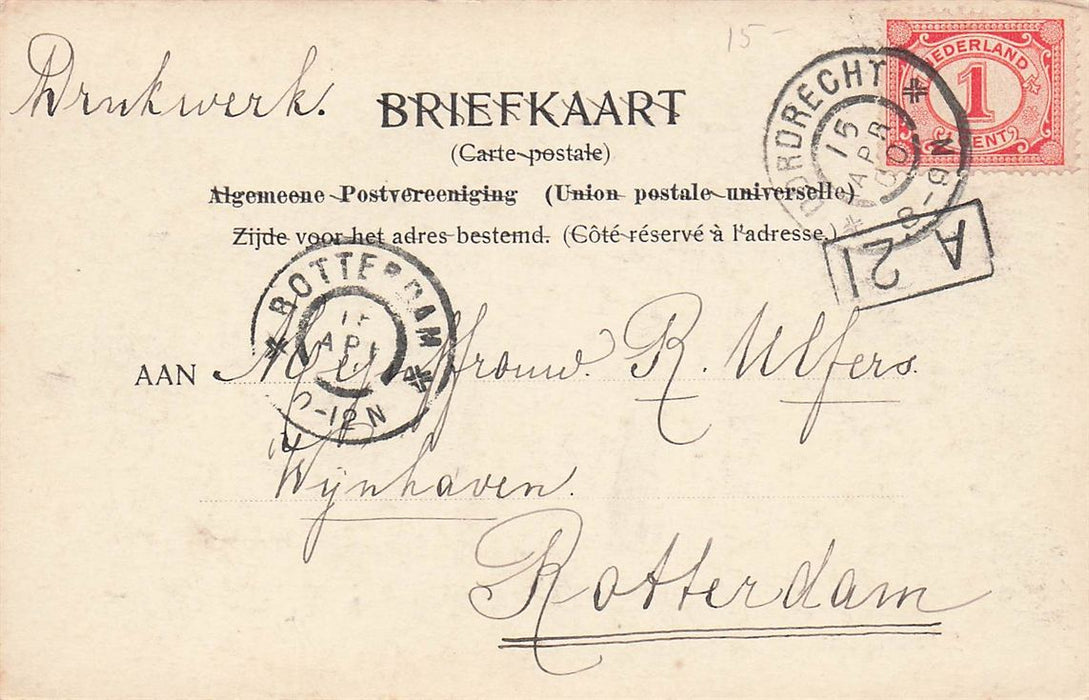 15-
Drukwerk.
BRIEFKAART
(Carte postale)
Algemeene Postvereeniging (Union postale universelle)
Zijde voor het adres bestemd. (Côté réservé à l'adresse.)
NEDERLAND
1
CENT
DORDRECHT
15
APR
A
21
ROTTERDAM
-12N
AAN Mejuffrouw. R. Ulfers.
Wijnhaven.
Rotterdam